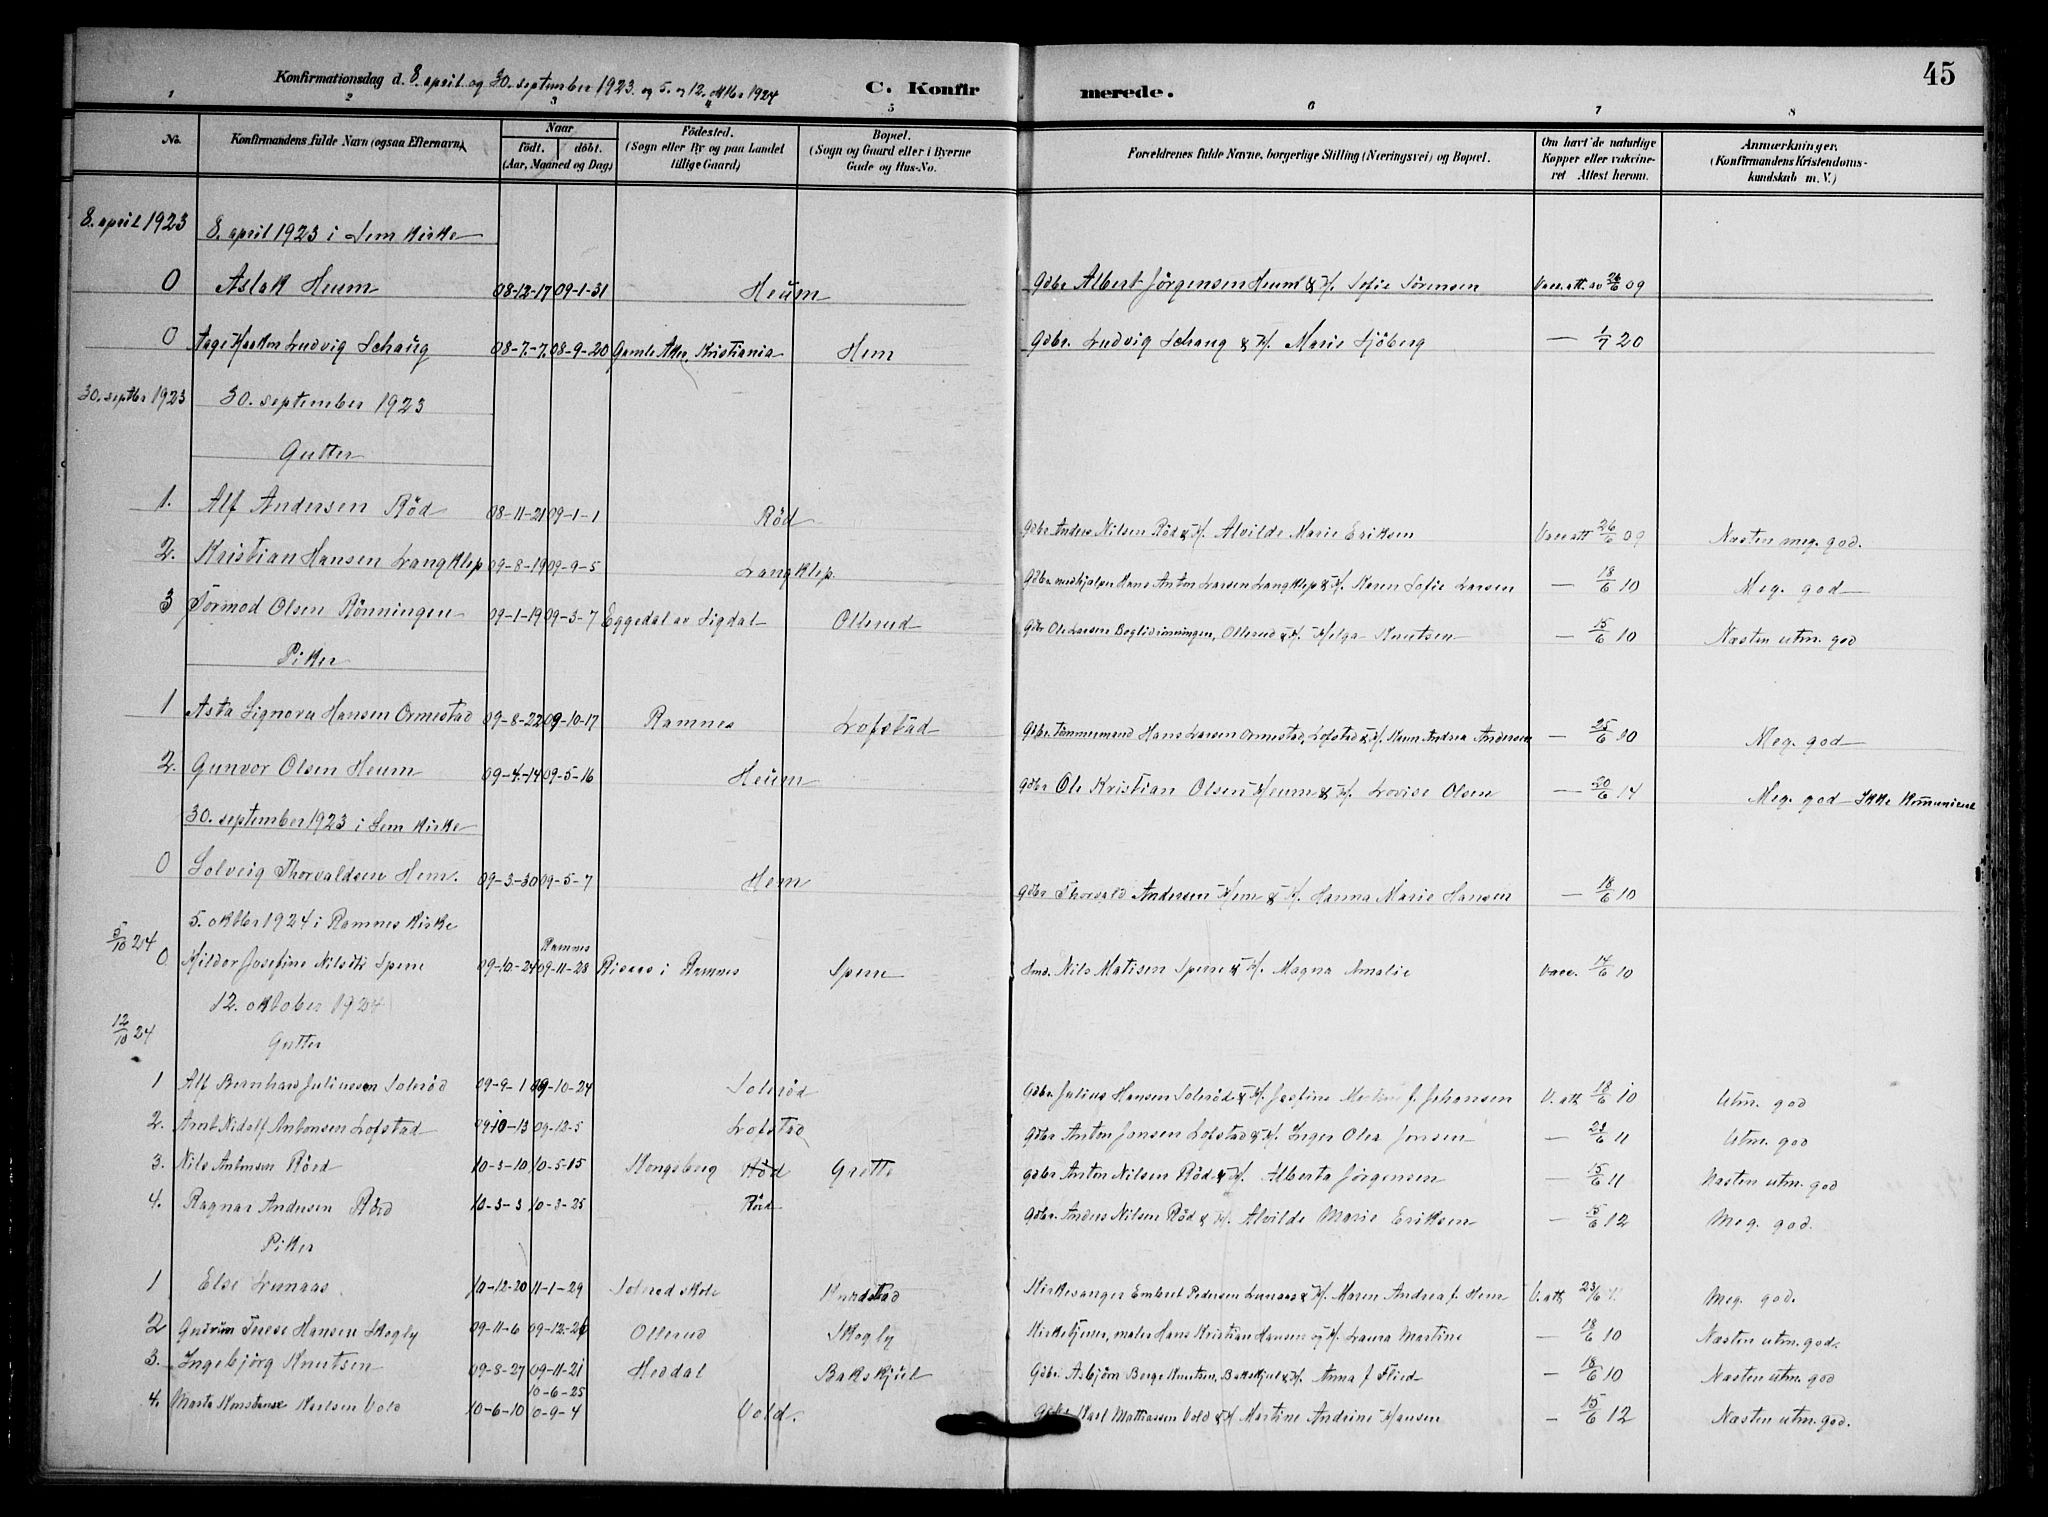 45
Konfirmationsdag d. 8. april og 30. september 1923. og 5. og 12. oktbr 1924 C. Konfirmerede.
1 2 3 4 5 6 7 8
No. Konfirmandens fulde Navn (ogsaa Efternavn) Naar födt. döbt. (Aar, Maaned og Dag) Födested. (Sogn eller By og paa Landet tillige Gaard) Bopæl. (Sogn og Gaard eller i Byerne Gade og Hus-No. Forældrenes fulde Navne, borgerlige Stilling (Næringsvei) og Bopæl. Om havt de naturlige Kopper eller vakcineret Attest herom. Anmærkninger. (Konfirmandens Kristendomskundskab m. V.)
8. april 1923 8. april 1923 i Sem kirke
0 Aslak Heum 08-12-17 09-1-31 Heum Gdbr Albert Jörgensen Heum & H. Sofie Sörensen Vacc. att. av 26/6 09
0 Aage Haakon Ludvig Schaug 08-7-7. 08-9-20 Gamle Aker, Kristiania Hem Gdbr. Ludvig Schaug & H. Marie Sjöberg — 1/7 20
30. septbr 1923 30. september 1923
Gutter
1. Alf Andersen Röd 08-11-21 09-1-1 Röd Gdbr Anders Nilsen Röd & H. Alvilde Marie Eriksen Vacc att 26/6 09 Næsten meg. god.
2. Kristian Hansen Langklep 09-8-19 09-9-5 Langklep. Gdbr. Hans Anton Larsen Langklep & H. Karen Sofie Larsen — 18/6 10 Meg. god
3 Tormod Olsen Rönningen 09-1-19 09-3-7 Eggedal av Sigdal Ollerud Gdbr Ole Larsen Ollerud & H. Helga Knutsen — 15/6 10 Næsten utm. god
Piker
1 Asta Signora Hansen Ormestad 09-8-22 09-10-17 Ramnes Lofstad Gdbr Tömmermand Hans Larsen Ormestad, Lofstad & H. Karen Andrea Andersen — 25/6 10 Meg. god
2. Gunvor Olsen Heum 09-4-14 09-5-16 Heum Gdbr Ole Kristian Olsen Heum & H. Lovise Olsen — 20/6 14 Meg. god — Ikke
30. september 1923 i Sem kirke
0 Solveig Thorvaldsen Hem. 09-3-30 09-5-7 Hem Gdbr Thorvald Andersen Hem & H. Hanna Marie Hansen — 18/6 10
5. oktbr 1924 i Ramnes kirke
5/10 24 0. Hildor Josefine Nilsen Spene 09-10-24 Ramnes 09-11-28 i Ramnes Spene Smd. Nils Matisen Spene & H. Magna Amalie Vacc. 14/6 10
12. oktober 1924
12/10 24 Gutter
1 Alf Bernhard Juliussen Solerød 09-9-1 09-10-24 Solerød Gdbr. Julius Hansen Solerød & H. Josefine f. Johansen V. att 18/6 10 Utm. god
2. Arnt Nidolf Antonsen Lofstad 09-10-13 09-12-5 Lofstad Gdbr Anton Jansen Lofstad & H. Inger Olea Jonsen — 23/6 11 Utm. god
3. Nils Antonsen Röed 10-3-10 10-5-15 Kongsberg Röd Grette Gdbr Anton Nilsen Röd & H. Alberta Jörgensen — 15/6 11 Næsten utm. god
4. Ragnar Andersen Röd 10-3-3 10-3-25 Röd Gdbr. Anders Nilsen Röd & H. Alvilde Marie Eriksen — 15/6 12 Meg. god.
Piker
1 Else Lunaas 10-12-20 11-1-29 Solerød skole Kirkesanger Embret Pedersen Lunaas & H. Maren Andrea f. Hem V. att 23/6 Meg. god.
2 Gudrun Terese Hansen Skogly 09-11-6 09-12-26 Ollerud Skogly Kirketjener, maler Hans Kristian Hansen og H. Laura Martine — 18/6 10 Næsten utm. god.
3. Ingebjörg Knutsen 09-8-27 09-11-21 Heddal Bakskjul Gdbr. Asbjörn Berge Knutsen, Bakskjul & H. Anna f. Flied — 18/6 10 Næsten utm. god
4. Marta Konstanse Karlsen Vold 10-6-10 10-6-25 10-9-4 Vold. Gdbr Karl Mathiassen Vold & H. Martine Andrine Hansen — 15/6 12 Næsten utm. god.